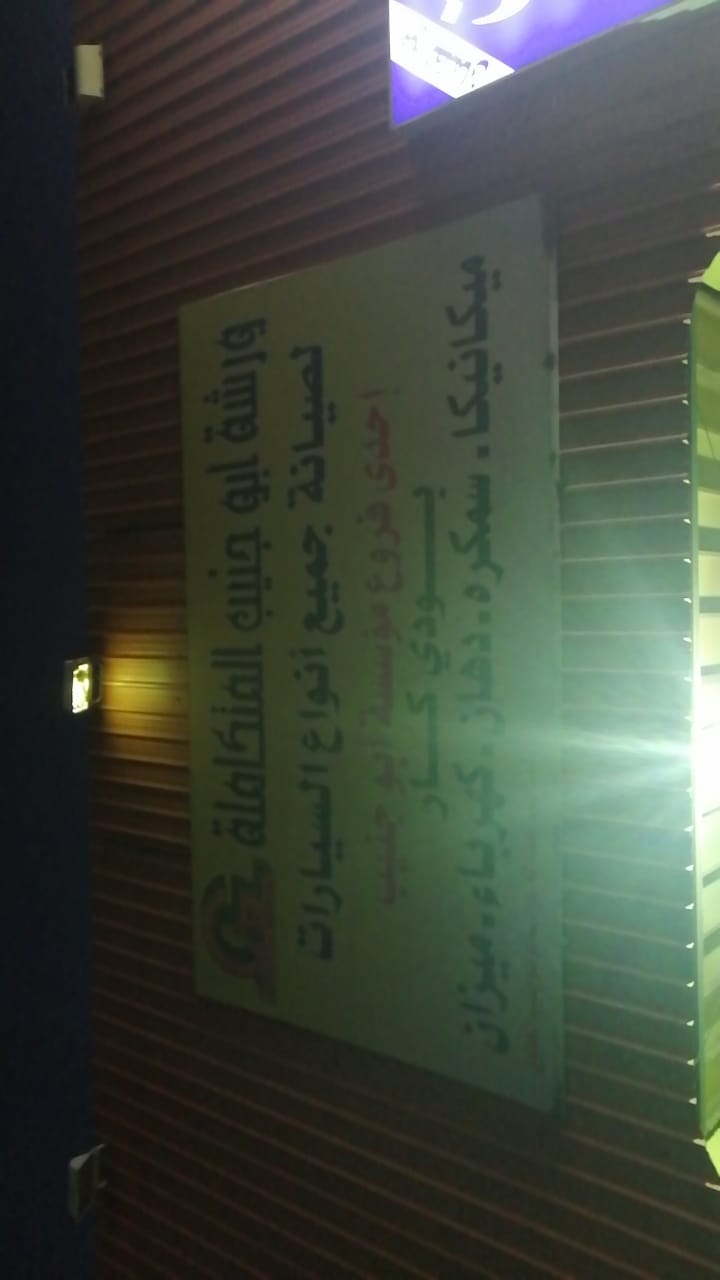 ورشة ابو جنيب المتكاملة
لصيانة جميع انواع السيارات
إحدى فروع مؤسسة ابو جنيب
بـــودي كـــار
ميكانيكا. سمكره. دهان. كهرباء. ميزان